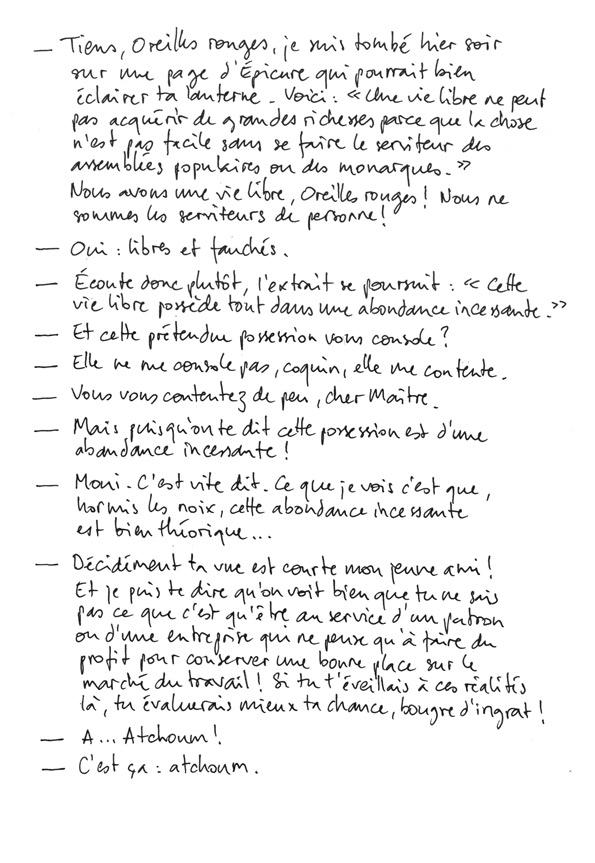 — Tiens, Oreilles rouges, je suis tombé hier soir
sur une page d'Épicure qui pourrait bien
éclairer ta lanterne. Voici : « Une vie libre ne peut
pas acquérir de grandes richesses parce que la chose
n'est pas facile sans se faire le serviteur des
assemblées populaires ou des monarques. »
Nous avons une vie libre, Oreilles rouges ! Nous ne
sommes les serviteurs de personne !
— Oui : libres et fauchés.
— Écoute donc plutôt, l'extrait se poursuit : « Cette
vie libre possède tout dans une abondance incessante. »
— Et cette prétendue possession vous console ?
— Elle ne me console pas, coquin, elle me contente.
— Vous vous contentez de peu, cher Maître.
— Mais puisqu'on te dit cette possession est d'une
abondance incessante !
— Moui. C'est vite dit. Ce que je vois c'est que,
hormis les noix, cette abondance incessante
est bien théorique...
— Décidément ta vue est courte mon jeune ami !
Et je puis te dire qu'on voit bien que tu ne sais
pas ce que c'est qu'être au service d'un patron
ou d'une entreprise qui ne pense qu'à faire du
profit pour conserver une bonne place sur le
marché du travail ! Si tu t'éveillais à ces réalités
là, tu évaluerais mieux ta chance, bougre d'ingrat !
— A... Atchoum !
— C'est ça : atchoum.